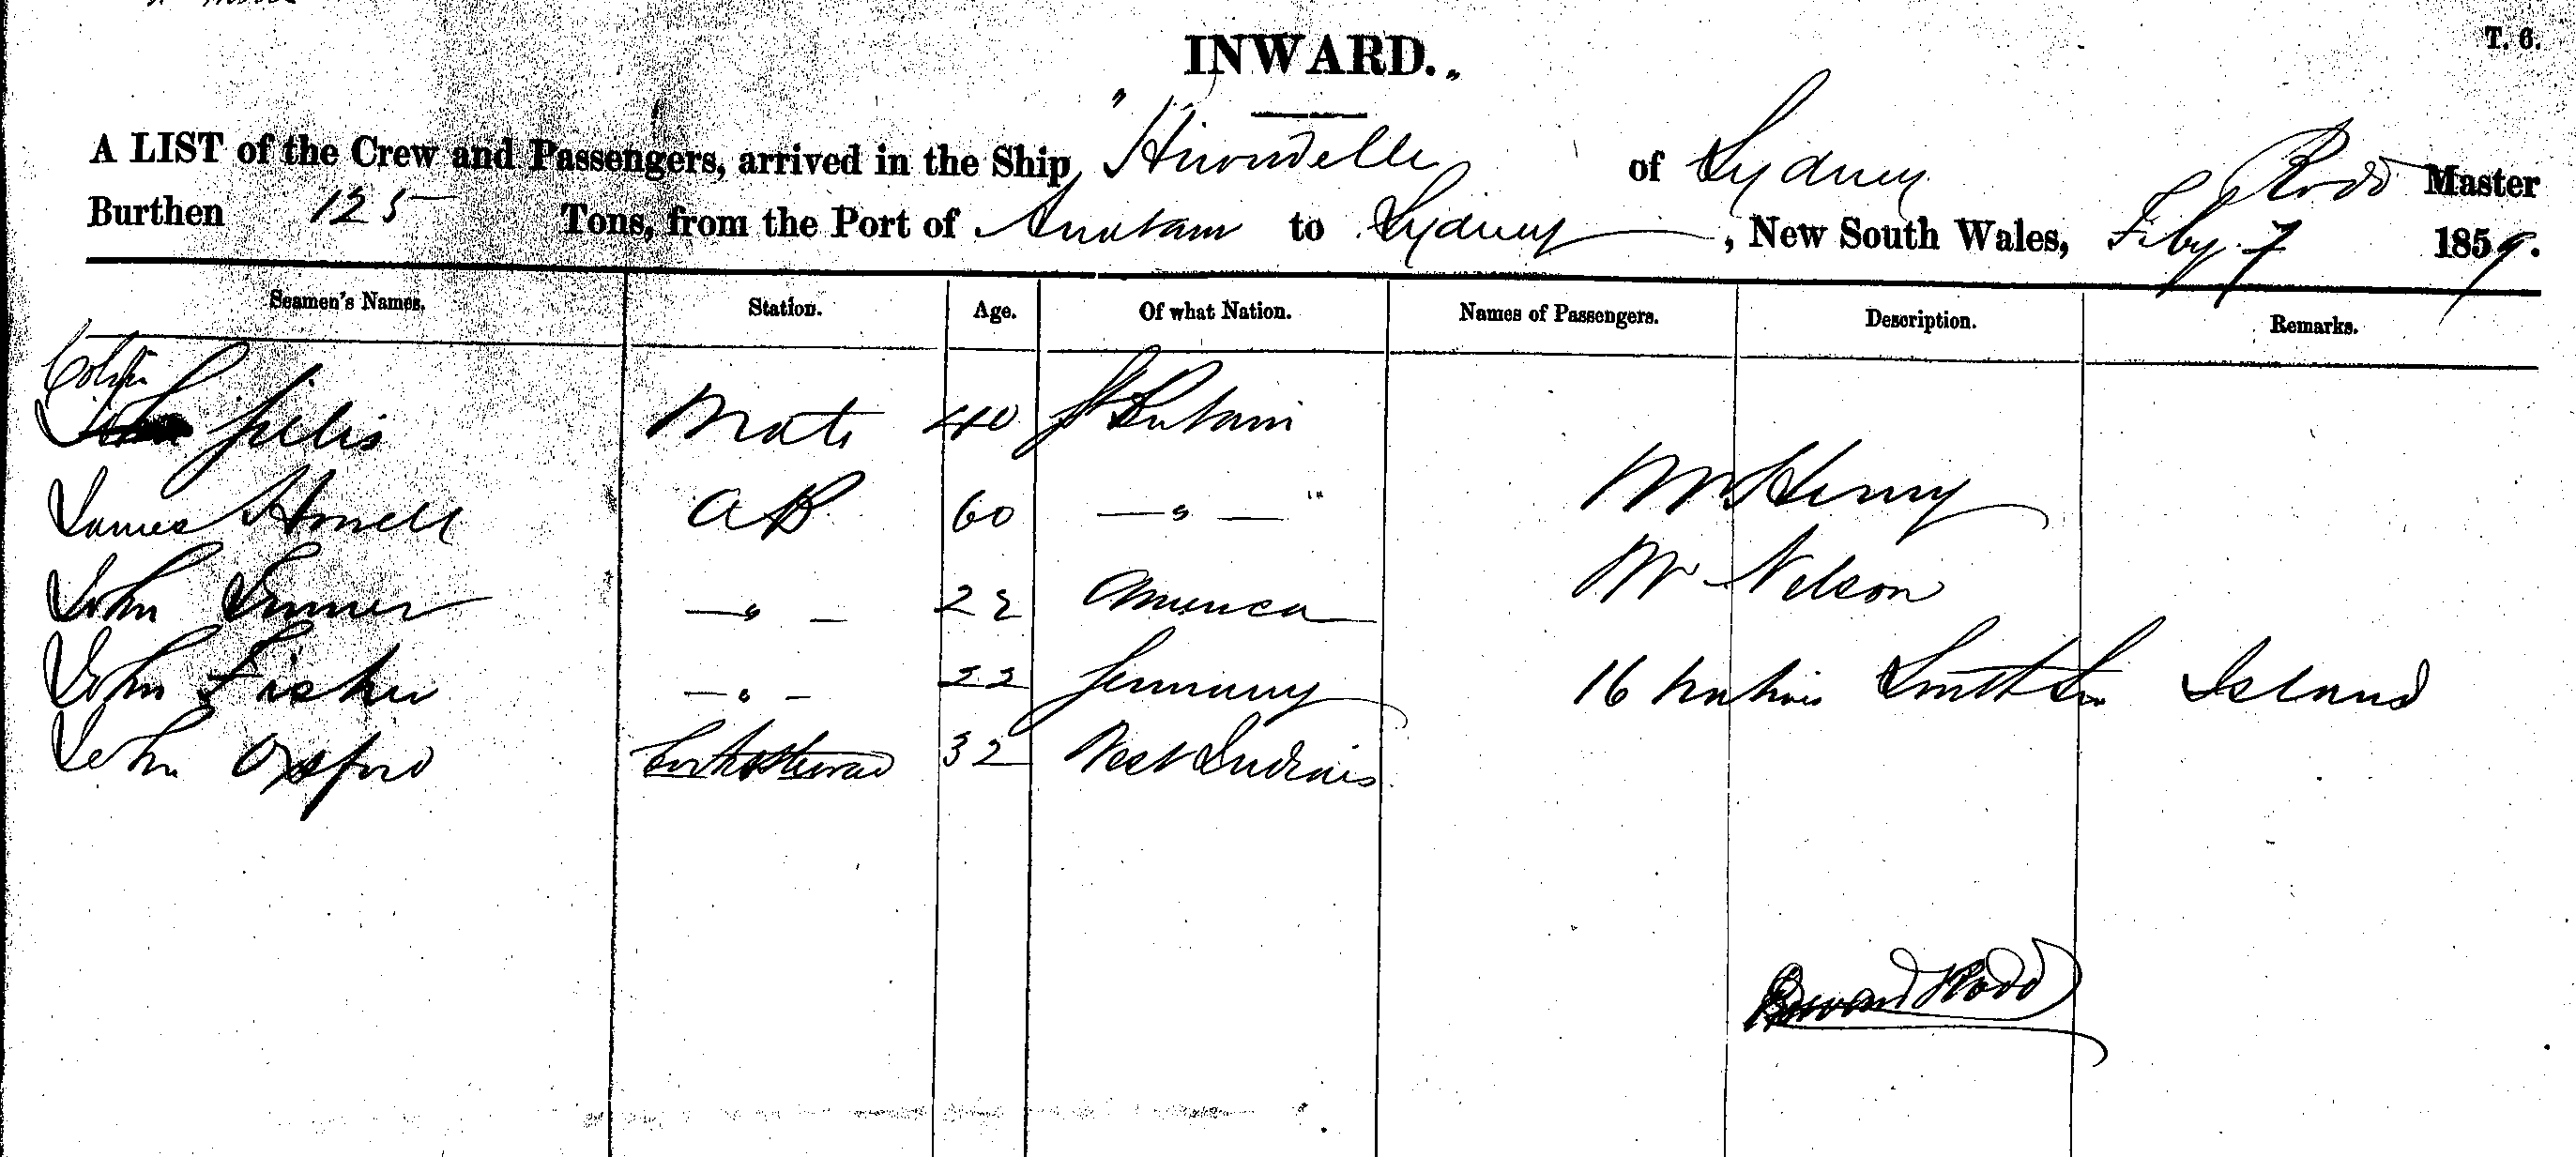 INWARD.
T. 6.
A LIST of the Crew and Passengers, arrived in the Ship "Hirondelle" of Sydney Rodd Master
Burthen 125 Tons, from the Port of Anatam to Sydney, New South Wales, Feby. 7 1859.
Seamen's Names. Station. Age. Of what Nation. Names of Passengers. Description. Remarks.
Colin
Mate 40 Gt Britain
James Howell AB 60 —"— " Mr. Henry
John —"— America Mr Nelson
John Fisher —"— 22 Germany 16 natives South Sea Island
John Oxford Cook & Steward 32 West Indies
Edward Rodd